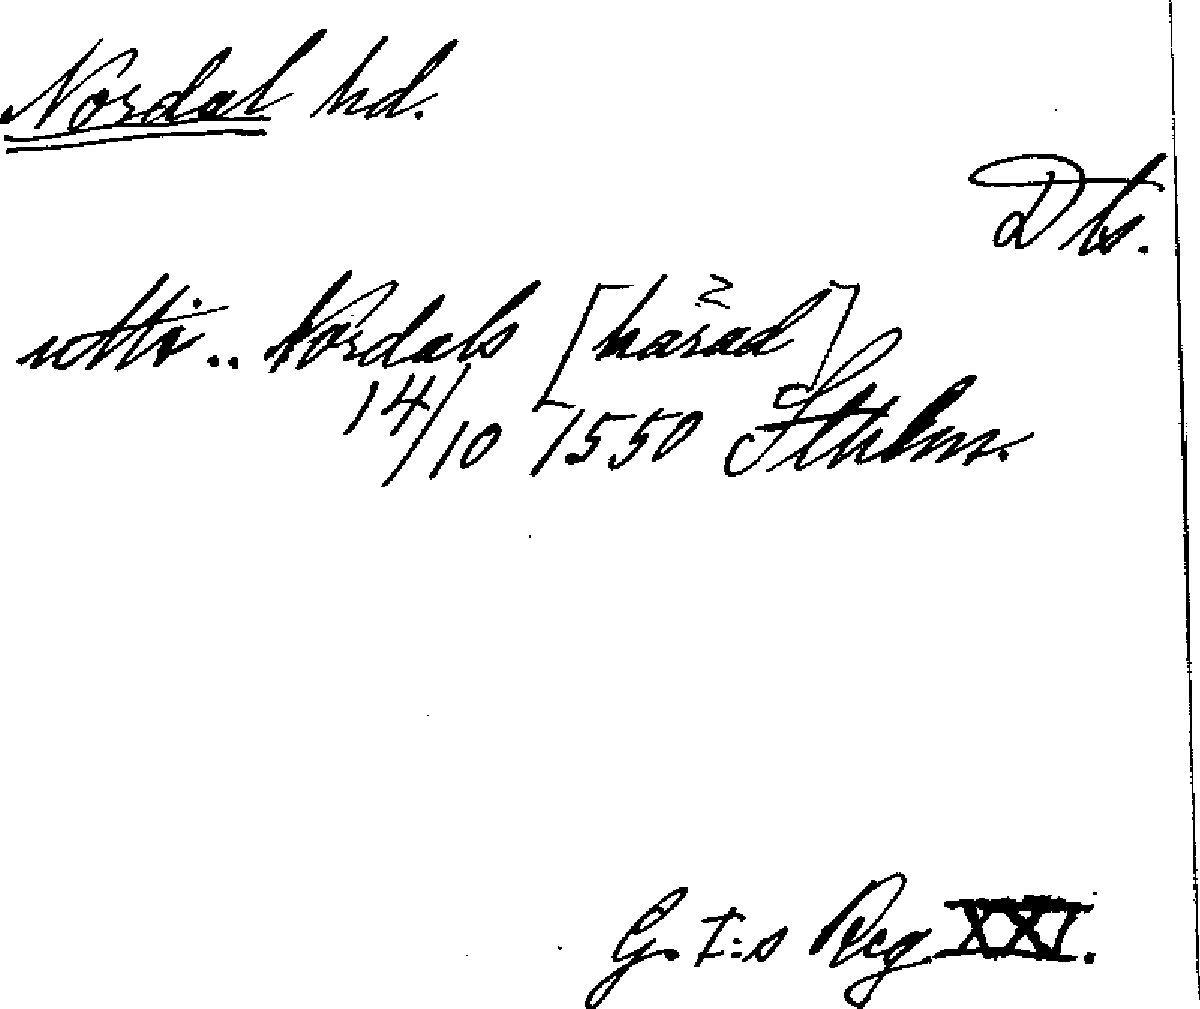 Nordal hd.
Dls.
utti .. Nordals [härad]
14/10 1550 Sthlm.
G. I:s Reg XXI.